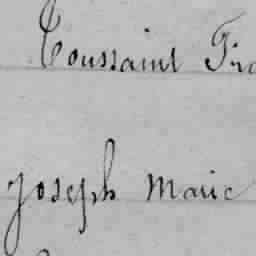 Toussaint Fra
Joseph Marie